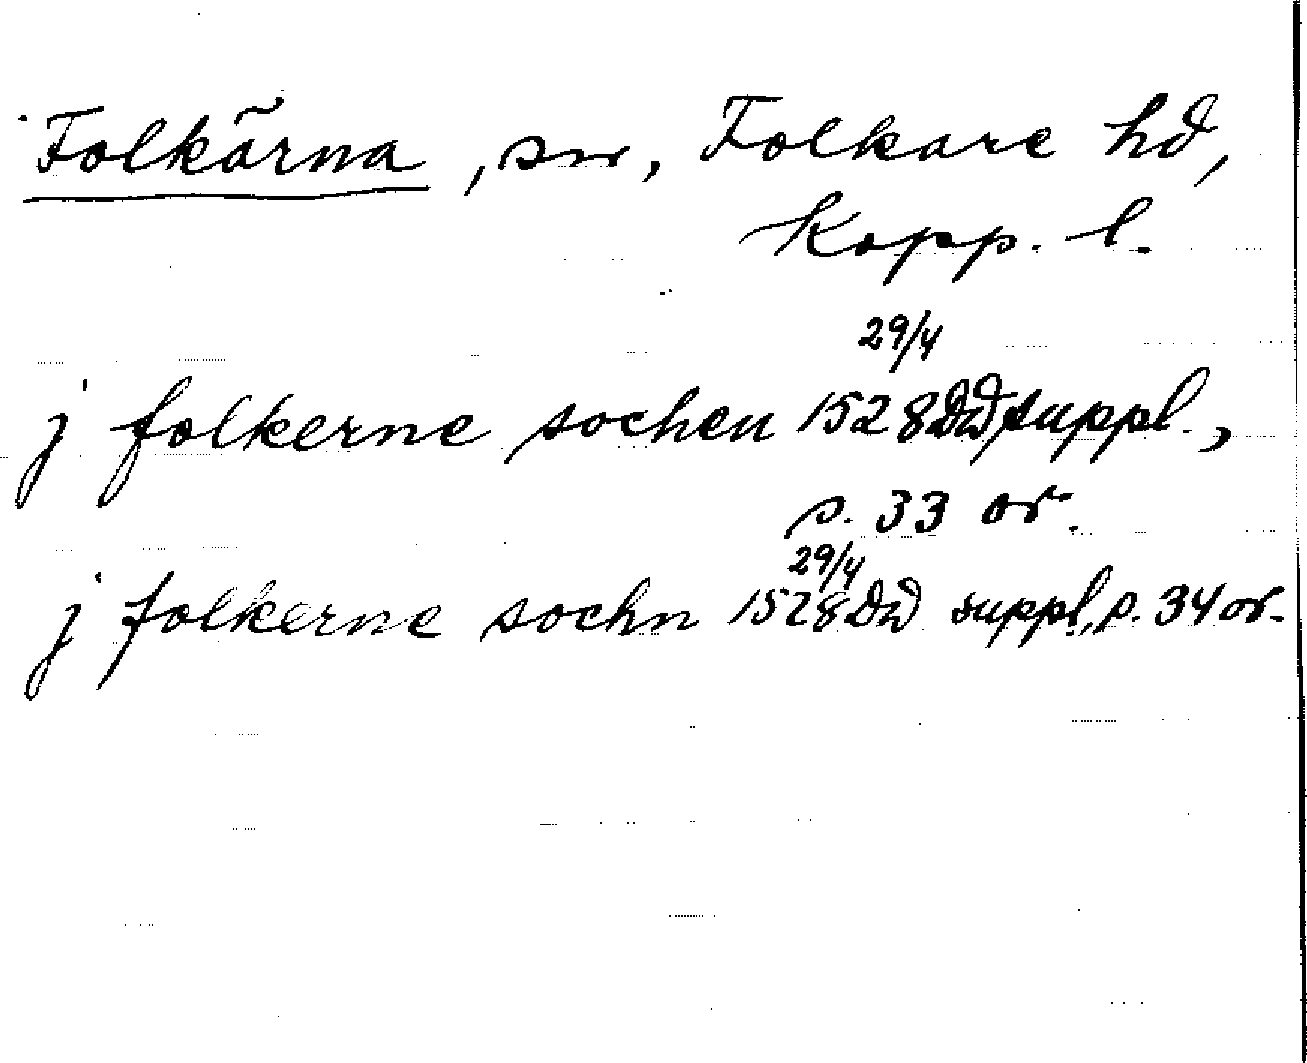 Folkärna, sn, Folkare hd,
Kopp. l.
29/4
j folkerne sochen 1528 DD suppl.,
s. 33 or.
29/4
j folkerne sochn 1528 DD suppl., s. 34 or.